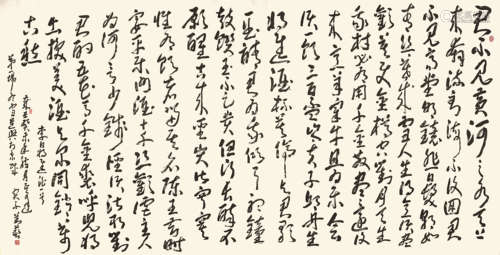 君不見黃河之水天上
來奔流到海不復回君
不見高堂明鏡悲白髮朝如
青絲暮成雪人生得意須盡
歡莫使金樽空對月天生
我材必有用千金散盡還復
來烹羊宰牛且為樂會
須一飲三百杯岑夫子丹丘生
將進酒杯莫停與君歌
一曲請君為我傾耳聽鐘
鼓饌玉不足貴但願長醉不
願醒古來聖賢皆寂寞
惟有飲者留其名陳王昔時
宴平樂斗酒十千恣歡謔主人
為何言少錢徑須沽取對
君酌五花馬千金裘呼兒將
出換美酒與爾同銷萬
古愁
李白將進酒